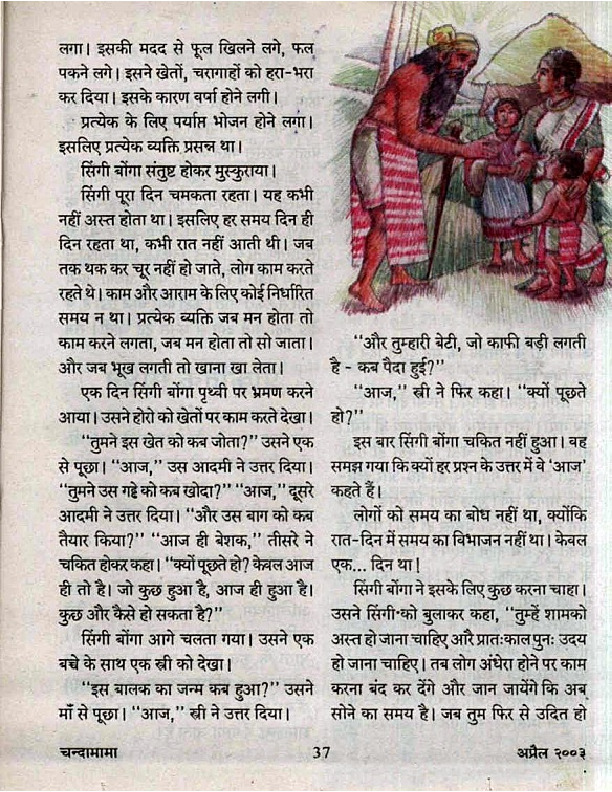 लगा। इसकी मदद से फूल खिलने लगे, फल
पकने लगे। इसने खेतों, चरागाहों को हरा-भरा
कर दिया। इसके कारण वर्षा होने लगी।
प्रत्येक के लिए पर्याप्त भोजन होने लगा।
इसलिए प्रत्येक व्यक्ति प्रसन्न था।
सिंगी बोंगा संतुष्ट होकर मुस्कुराया।
सिंगी पूरा दिन चमकता रहता। यह कभी
नहीं अस्त होता था। इसलिए हर समय दिन ही
दिन रहता था, कभी रात नहीं आती थी। जब
तक थक कर चूर नहीं हो जाते, लोग काम करते
रहते थे। काम और आराम के लिए कोई निर्धारित
समय न था। प्रत्येक व्यक्ति जब मन होता तो
काम करने लगता, जब मन होता तो सो जाता।
और जब भूख लगती तो खाना खा लेता।
एक दिन सिंगी बोंगा पृथ्वी पर भ्रमण करने
आया। उसने होरो को खेतों पर काम करते देखा।
“तुमने इस खेत को कब जोता?” उसने एक
से पूछा। “आज,” उस आदमी ने उत्तर दिया।
“तुमने उस गड्ढे को कब खोदा?” “आज,” दूसरे
आदमी ने उत्तर दिया। “और उस बाग को कब
तैयार किया?” “आज ही बेशक,” तीसरे ने
चकित होकर कहा। “क्यों पूछते हो? केवल आज
ही तो है। जो कुछ हुआ है, आज ही हुआ है।
कुछ और कैसे हो सकता है?”
सिंगी बोंगा आगे चलता गया। उसने एक
बच्चे के साथ एक स्त्री को देखा।
“इस बालक का जन्म कब हुआ?” उसने
माँ से पूछा। “आज,” स्त्री ने उत्तर दिया।
“और तुम्हारी बेटी, जो काफी बड़ी लगती
है - कब पैदा हुई?”
“आज,” स्त्री ने फिर कहा। “क्यों पूछते
हो?”
इस बार सिंगी बोंगा चकित नहीं हुआ। वह
समझ गया कि क्यों हर प्रश्न के उत्तर में वे ‘आज’
कहते हैं।
लोगों को समय का बोध नहीं था, क्योंकि
रात-दिन में समय का विभाजन नहीं था। केवल
एक... दिन था!
सिंगी बोंगा ने इसके लिए कुछ करना चाहा।
उसने सिंगी को बुलाकर कहा, “तुम्हें शामको
अस्त हो जाना चाहिए आरै प्रातःकाल पुनः उदय
हो जाना चाहिए। तब लोग अंधेरा होने पर काम
करना बंद कर देंगे और जान जायेंगे कि अब
सोने का समय है। जब तुम फिर से उदित हो
चन्दामामा
37
अप्रैल २००३